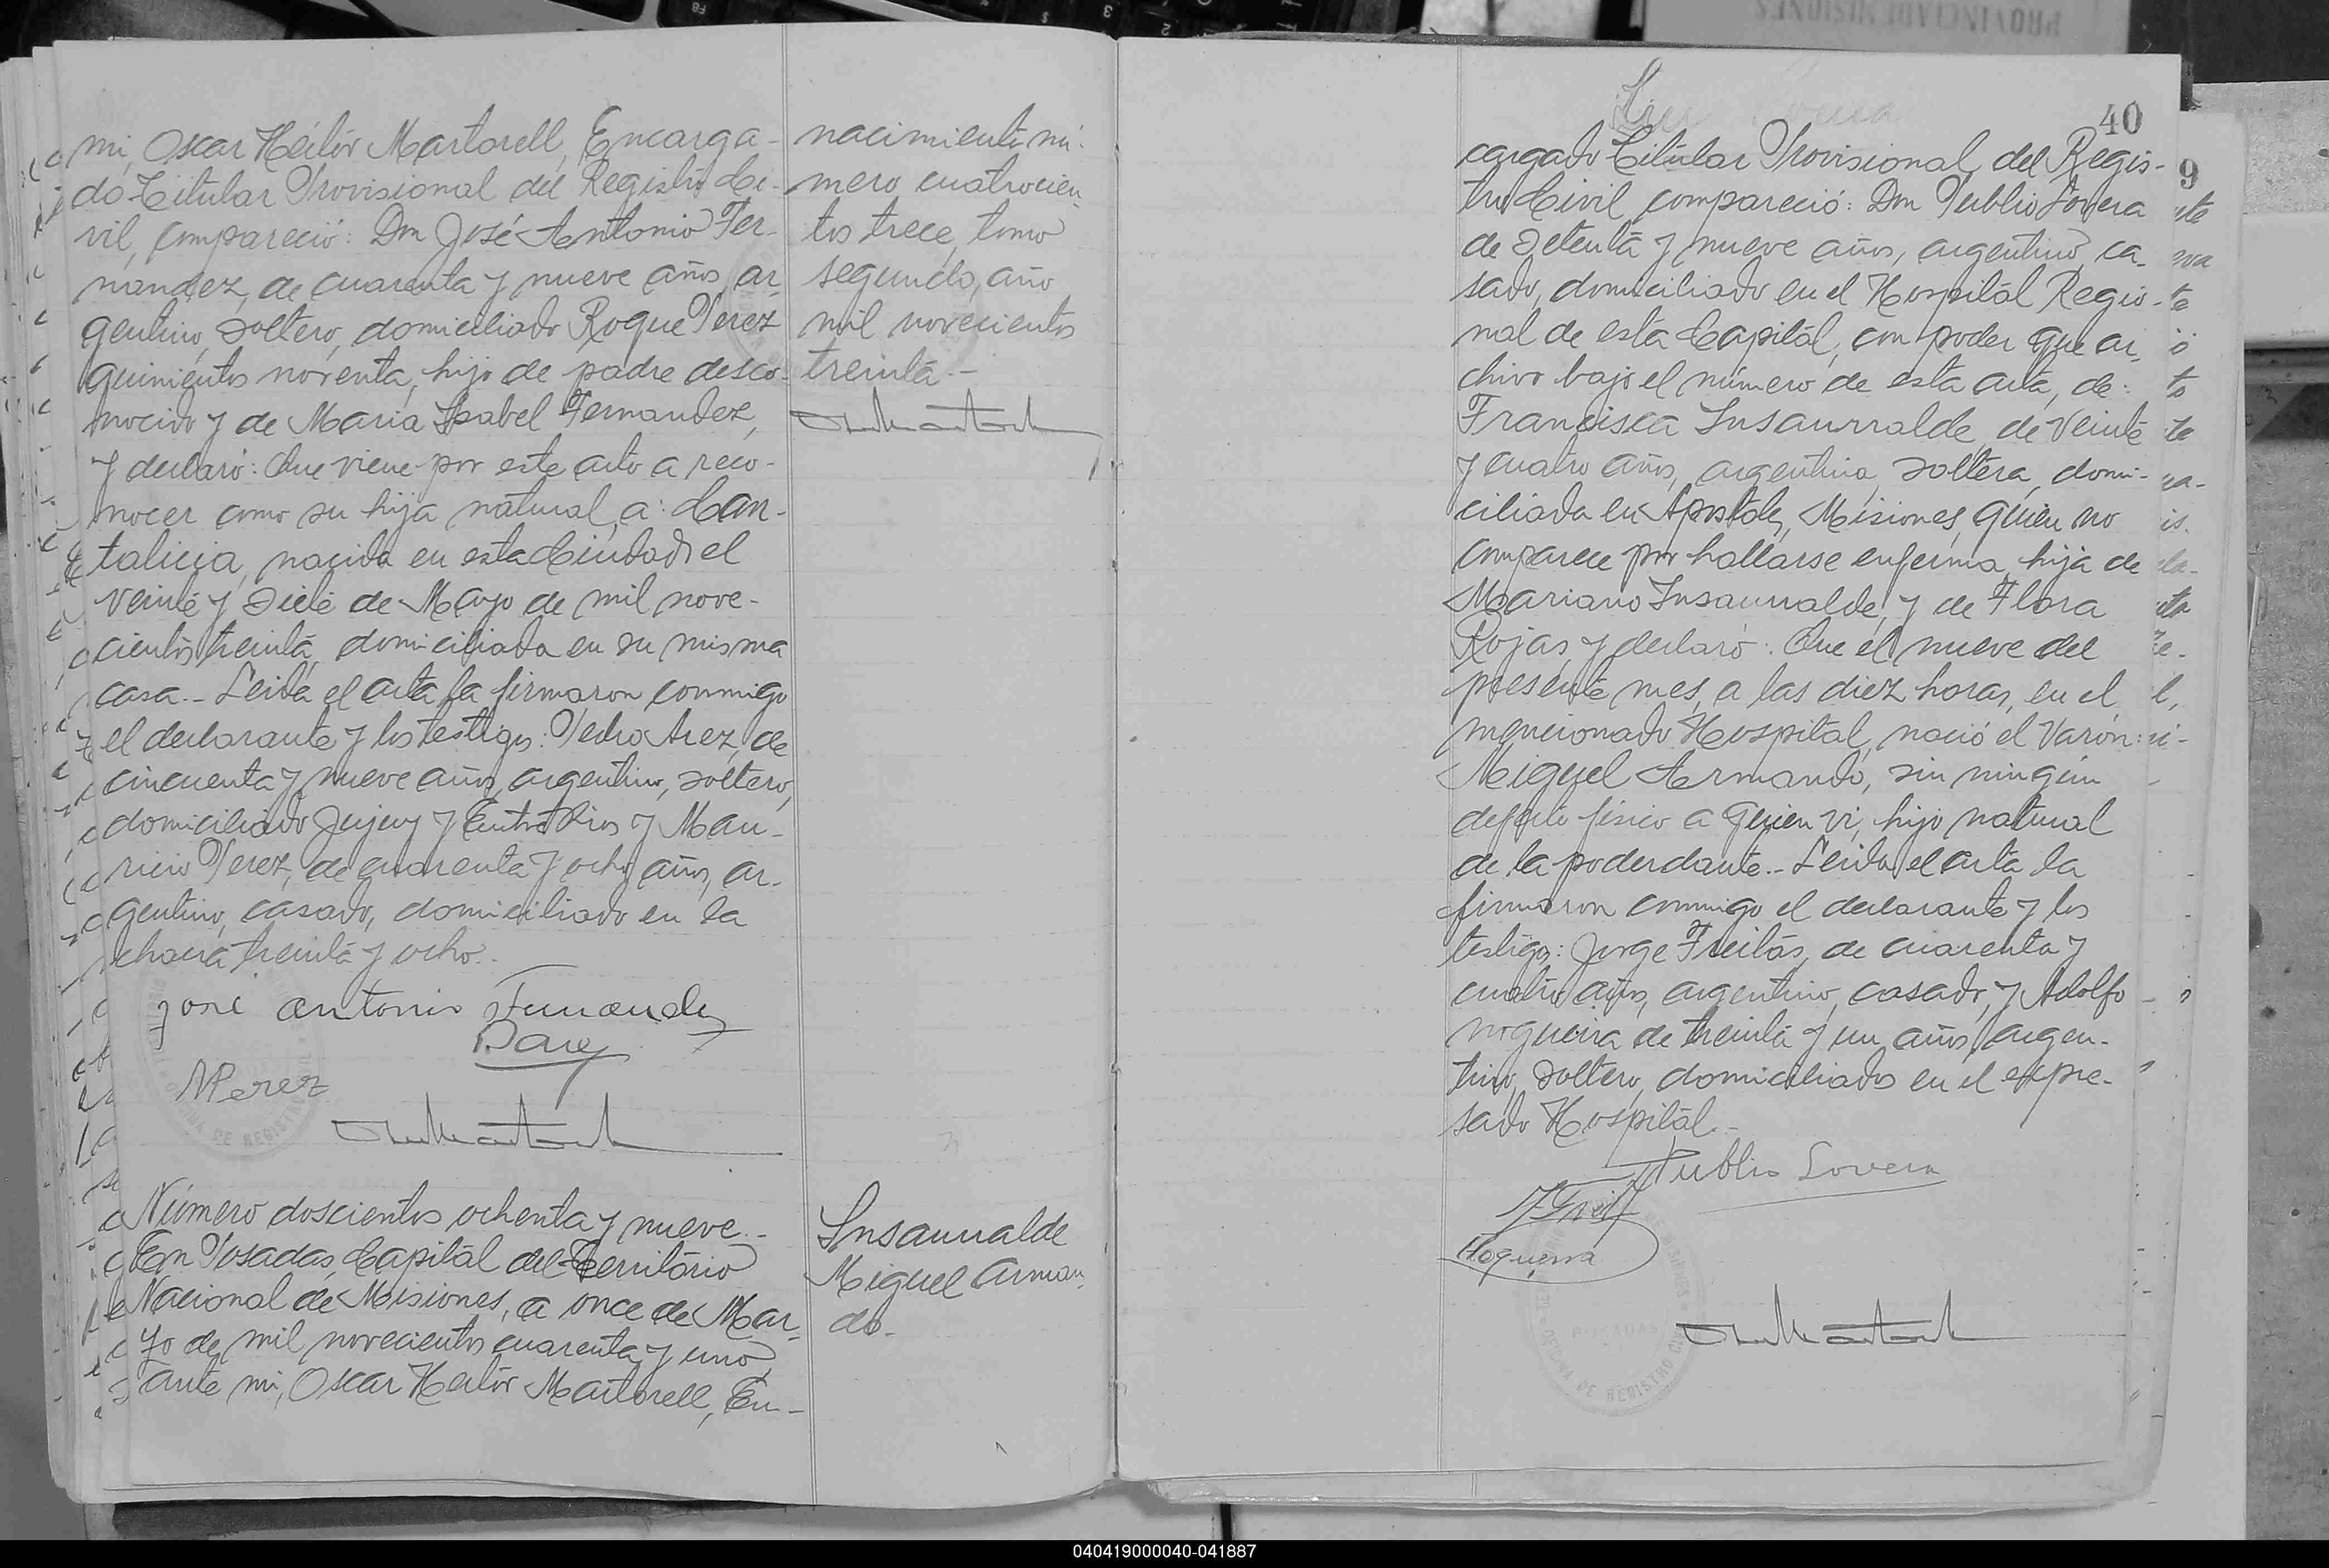 mi, Oscar Héctor Martorell, Encarga-
do Titular Provisional del Registro Ci-
vil, compareció: Don José Antonio Fer-
nandez, de cuarenta y nueve años, ar-
gentino, soltero, domiciliado Roque Perez
quinientos noventa, hijo de padre desco-
nocido y de Maria Isabel Fernandez,
y declaró: Que viene por este acto a reco-
nocer como su hija natural, a: Can-
talicia, nacida en esta Ciudad el
veinte y siete de Mayo de mil nove-
cientos treinta, domiciliada en su misma
casa.- Leida el acta la firmaron conmigo
el declarante y los testigos: Pedro Arez, de
cincuenta y nueve años, argentino, soltero,
domiciliado Jujuy y Entre Rios y Mau-
ricio Perez, de cuarenta y ocho años, ar-
gentino, casado, domiciliado en la
chacra treinta y ocho.-
José Antonio Fernandez
MPerez
Número doscientos ochenta y nueve.-
En Posadas, Capital del Territorio
Nacional de Misiones, a once de Mar-
zo de mil novecientos cuarenta y uno,
ante mi, Oscar Héctor Martorell, En-
nacimiento nú-
mero cuatrocien-
tos trece, tomo
segundo, año
mil novecientos
treinta.-
Insaurralde
Miguel Arman-
do.-
40
cargado Titular Provisional del Regis-
tro Civil compareció: Don Publio Lovera
de setenta y nueve años, argentino, ca-
sado, domiciliado en el Hospital Regio-
nal de esta Capital, con poder que ar-
chivo bajo el número de esta acta, de:
Francisca Insaurralde, de veinte
y cuatro años, argentina, soltera, domi-
ciliada en Apostoles, Misiones, quien no
comparece por hallarse enferma, hija de
Mariano Insaurralde, y de Flora
Rojas, y declaró: Que el nueve del
presente mes, a las diez horas, en el
mencionado Hospital, nació el varón:
Miguel Armando, sin ningún
defecto físico a quien vi, hijo natural
de la poderdante.- Leida el acta la
firmaron conmigo el declarante y los
testigos: Jorge Freitas, de cuarenta y
cuatro años, argentino, casado, y Adolfo
Nogueira de treinta y un años, argen-
tino, soltero, domiciliados en el expre-
sado Hospital.-
Publio Lovera
Noguera
9
PROVINCIA DE MISIONES
OFICINA DE REGISTRO CIVIL
POSADAS
040419000040-041887